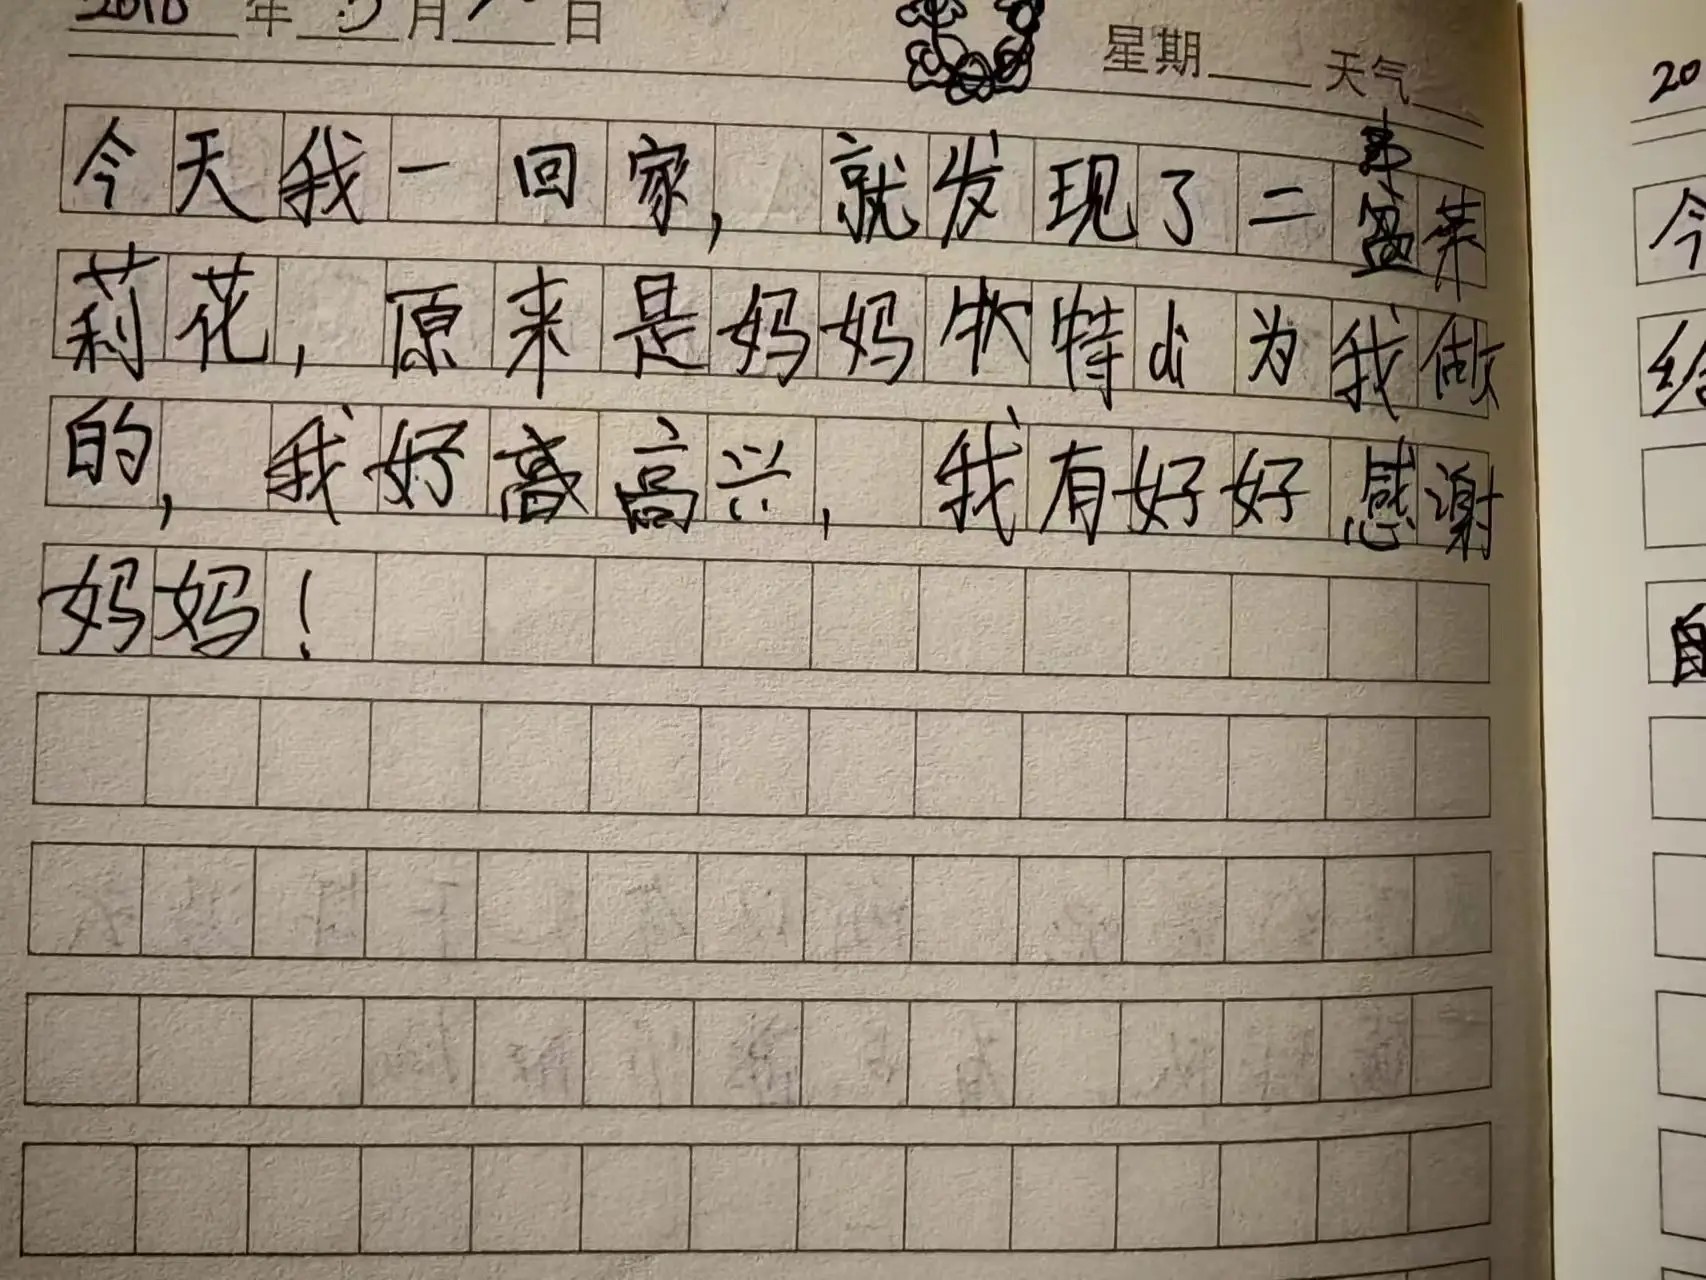 2018年3月日 星期 天气
今天我一回家，就发现了二盆茉
莉花，原来是妈妈特di为我做
的，我好高高兴，我有好好感谢
妈妈！
20
今
给
自